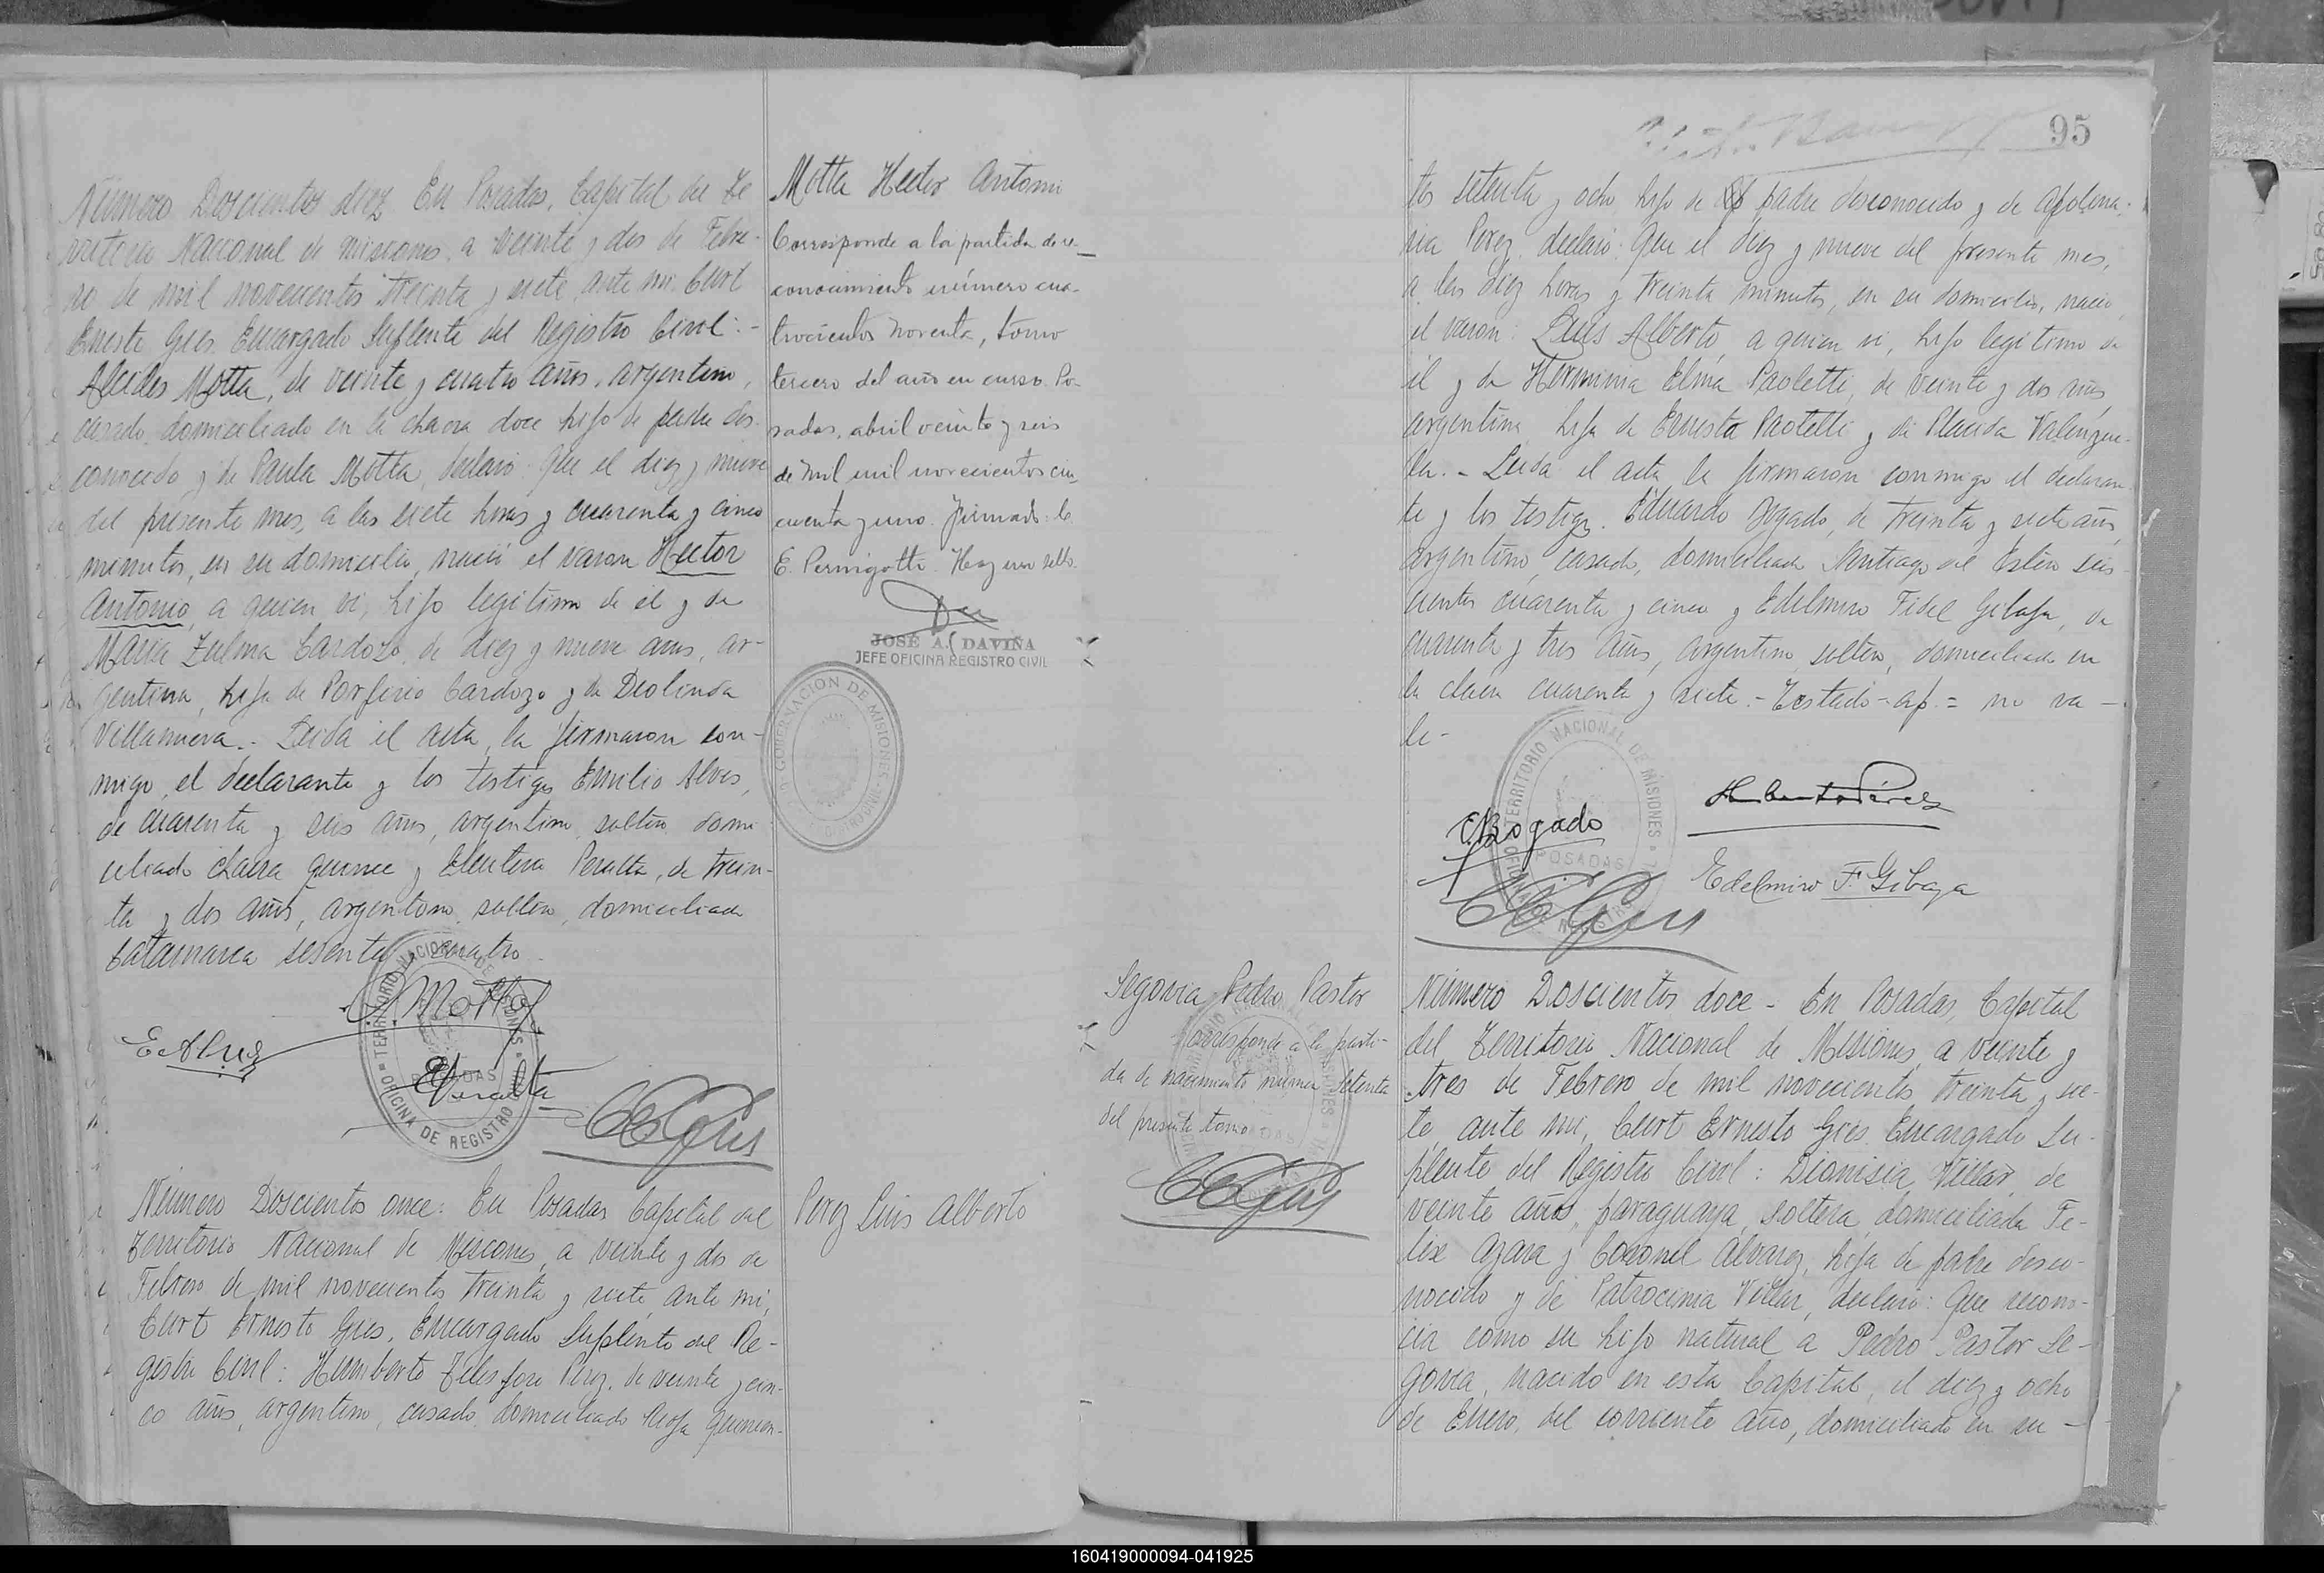 Número Doscientos diez. En Posadas, Capital del Te
rritorio Nacional de Misiones, a veinte y dos de Febre-
ro de mil novecientos treinta y siete, ante mi, Curt
Ernesto Gres. Encargado Suplente del Registro Civil: -
Alcides Motta, de veinte y cuatro años, argentino,
casado, domiciliado en la chacra doce hijo de padre des
conocido y de Paula Motta, declaró: Que el diez y nueve
del presente mes, a las siete horas y cuarenta y cinco
minutos, en su domicilio, nació el varon Hector
Antonio, a quien vi, hijo legitimo de él y de
Maria Zulma Cardozo, de diez y nueve años, ar-
gentina, hija de Porfirio Cardozo y de Deolinda
Villanueva.- Leida el acta, la firmaron con-
migo, el declarante y los testigos Emilio Alves,
de cuarenta y seis años, argentino, soltero, domi
ciliado chacra quince y Eleuterio Peralta, de trein-
ta y dos años, argentino, soltero, domiciliado
Catamarca sesenta y cuatro
Motta
TERRITORIO NACIONAL DE MISIONES
POSADAS
OFICINA DE REGISTRO
Motta Hector Antonio
Corresponde a la partida de re-
conocimiento número cua-
trocientos noventa, tomo
tercero del año en curso. Po-
sadas, abril veinte y seis
de mil mil novecientos cin
cuenta y uno. Firmado: C.
E. Pernigotti. Hay un sello.
JOSÉ A. DAVIÑA
JEFE OFICINA REGISTRO CIVIL
GOBERNACION DE MISIONES
Número Doscientos once: En Posadas Capital del
Territorio Nacional de Misiones, a veinte y dos de
Febrero de mil novecientos treinta y siete, ante mi,
Curt Ernesto Gres, Encargado Suplente del Re-
gistro Civil: Humberto Telesforo Perez, de veinte y cin-
co años, argentino, casado, domiciliado Rioja quinien-
Perez Luis Alberto
95
tos setenta y ocho, hijo de ap padre desconocido y de Apolina-
ria Perez, declaró: Que el diez y nueve del presente mes,
a las diez horas y treinta minutos, en su domicilio, nació
el varon: Luis Alberto, a quien vi, hijo legitimo de
él y de Herminia Elma Paoletti, de veinte y dos años
argentina, hija de Ernesto Paoletti y de Placida Valenzue-
la. - Leida el acta la firmaron conmigo el declaran
te y los testigos. Eduardo Bogado, de treinta y siete años
argentino, casado, domiciliado Santiago del Estero seis
cientos cuarenta y cinco y Edelmiro Fidel Gibaja, de
cuarenta y tres años, argentino, soltero, domiciliado en
la chacra cuarenta y siete. - Testado - ap. = no va -
le -
TERRITORIO NACIONAL DE MISIONES
POSADAS
Humberto Pérez
E. Bogado
Edelmiro F. Gibaja
Segovia Pedro Pastor
corresponde a la parti-
da de nacimiento número setenta
del presente tomo
Número Doscientos doce - En Posadas, Capital
del Territorio Nacional de Misiones, a veinte y
tres de Febrero de mil novecientos treinta y sie-
te, ante mi, Curt Ernesto Gres. Encargado Su-
plente del Registro Civil: Dionisia Villar, de
veinte años, paraguaya, soltera, domiciliada Fe-
lix Azara y Coronel Alvarez, hija de padre desco-
nocido y de Patrocinia Villar, declaró: Que recono-
cia como su hijo natural a Pedro Pastor Se-
govia, nacido en esta Capital, el diez y ocho
de Enero, del corriente año, domiciliado en su -
160419000094-041925